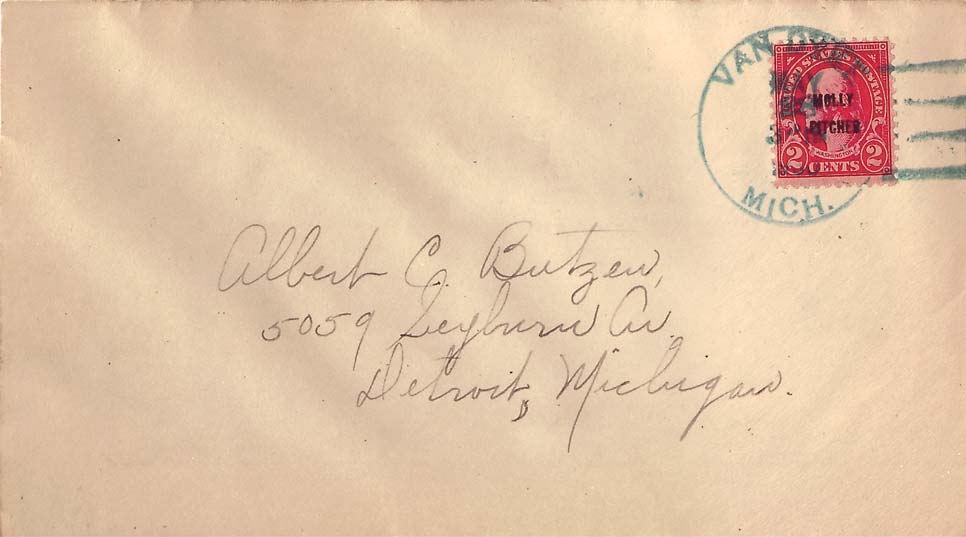 VAN
MICH.
UNITED STATES POSTAGE
MOLLY
PITCHER
WASHINGTON
2 CENTS 2
Albert C. Butzen,
5059 Seyburn Av.
Detroit, Michigan.